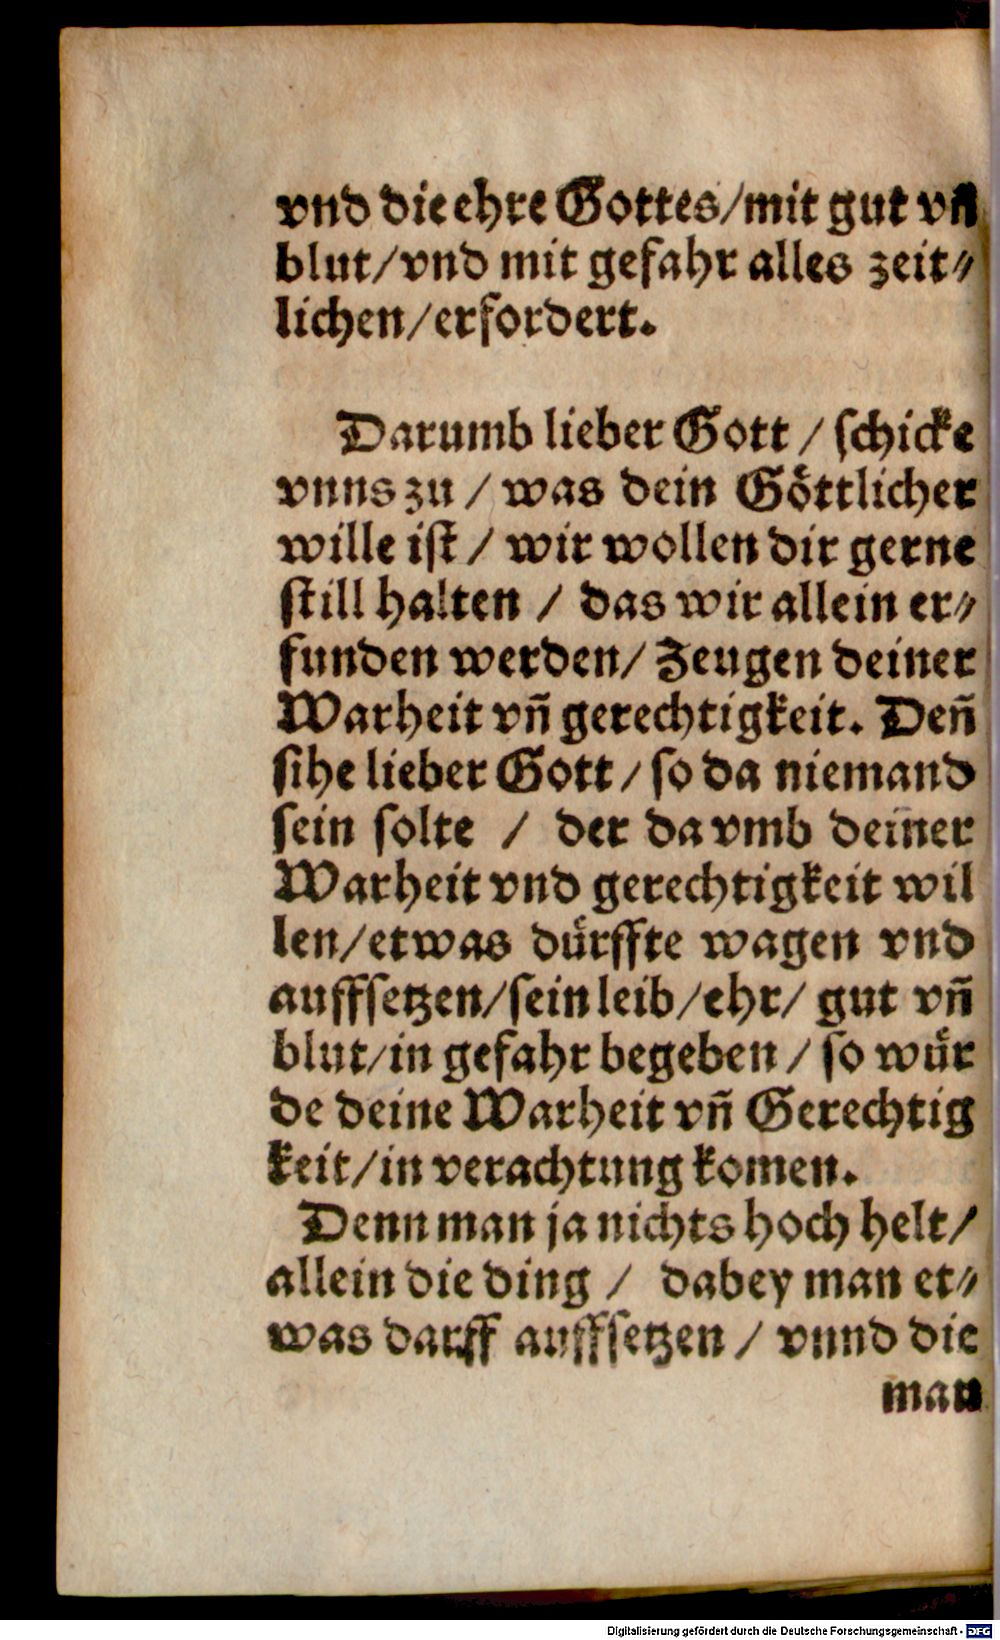 vnd die ehre Gottes/mit gut vñ
blut/vnd mit gefahr alles zeit⸗
lichen/erfordert.
Darumb lieber Gott / schicke
vnns zu / was dein Göttlicher
wille ist / wir wollen dir gerne
still halten / das wir allein er⸗
funden werden/ Zeugen deiner
Warheit vñ gerechtigkeit. Deñ
sihe lieber Gott / so da niemand
sein solte / der da vmb deiner
Warheit vnd gerechtigkeit wil
len/etwas dürffte wagen vnd
auffsetzen/sein leib/ehr/ gut vñ
blut/in gefahr begeben / so wür
de deine Warheit vñ Gerechtig
keit/in verachtung komen.
Denn man ja nichts hoch helt/
allein die ding / dabey man et⸗
was darff auffsetzen / vnnd die
man
Digitalisierung gefördert durch die Deutsche Forschungsgemeinschaft - DFG